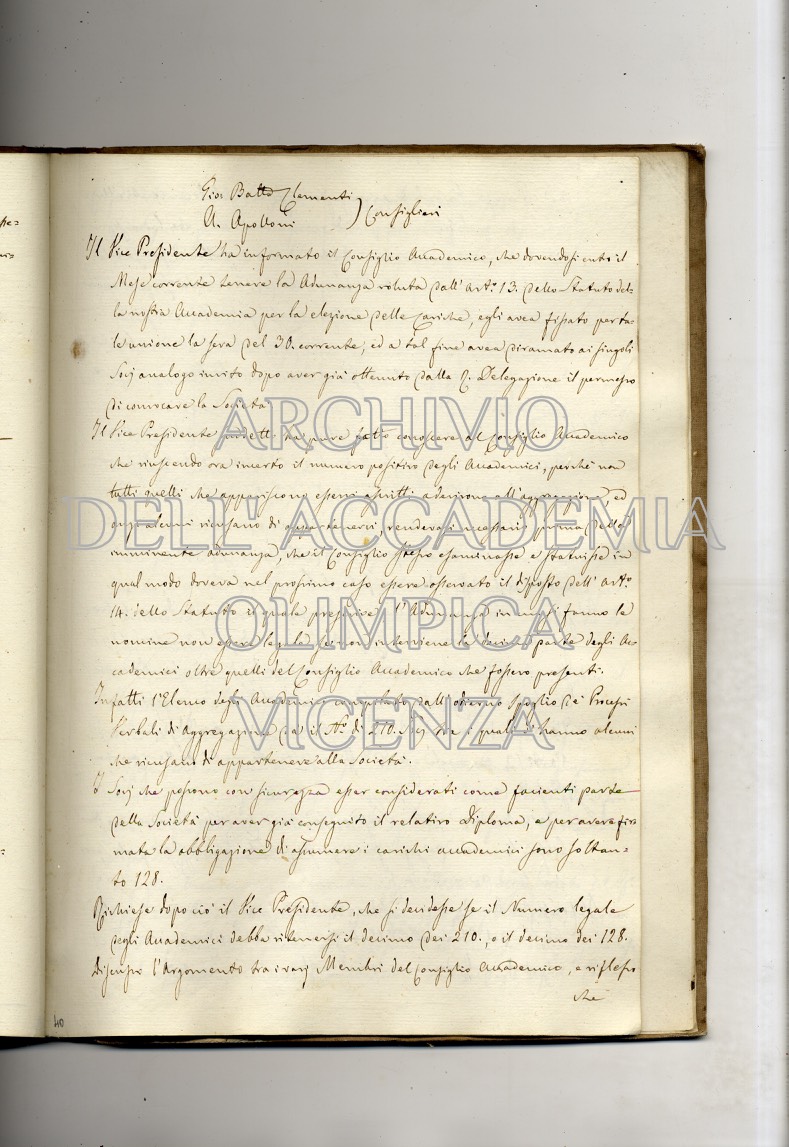 Gio: Batta Clementi
A. Apolloni ) Consiglieri
Il Vice Presidente ha informato il Consiglio Accademico, che dovendosi entro il
Mese corrente tenere la Adunanza voluta dall' art.º 13. dello Statuto del-
la nostra Accademia per la elezione delle Cariche, egli avea fissato per ta-
le unione la sera del 30. corrente; ed a tal fine avea diramato ai singoli
Socj analogo invito dopo aver già ottenuto dalla R. Delegazione il permesso
di convocare la Società
ARCHIVIO
Il Vice Presidente ha pure fatto conoscere al Consiglio Accademico
che riuscendo ora incerto il numero positivo degli Accademici, perchè non
tutti quelli che appariscono essersi ascritti all'aggregazione, ed
DELL'ACCADEMIA
anzi alcuni ricusano di appartenervi, rendevasi necessario prima della
imminente adunanza, che il Consiglio stesso esaminasse e statuisse in
qual modo doveva nel prossimo caso essere osservato il disposto dell' art.º
14. dello Statuto il quale prescrive l'Adunanza in cui si fanno le
OLIMPICA
nomine non essere legale se non interviene la decima parte degli Ac-
cademici oltre quelli del Consiglio Accademico che fossero presenti.
Infatti l'Elenco degli Accademici compilato dall' odierno spoglio de' Processi
VICENZA
Verbali di Aggregazione dà il N.º di 210. Socj tra i quali vi hanno alcuni
che ricusano di appartenere alla Società.
I Socj che possono con sicurezza esser considerati come facienti parte
della Società per aver già conseguito il relativo Diploma, e per avere fir-
mata la obbligazione di assumere i carichi accademici sono soltan-
to 128.
Richiese dopo ciò il Vice Presidente, che si decidesse se il Numero legale
degli Accademici debba ritenersi il decimo dei 210., o il decimo dei 128.
Discusso l'Argomento tra i varj Membri del Consiglio Accademico, e riflesso
che
40